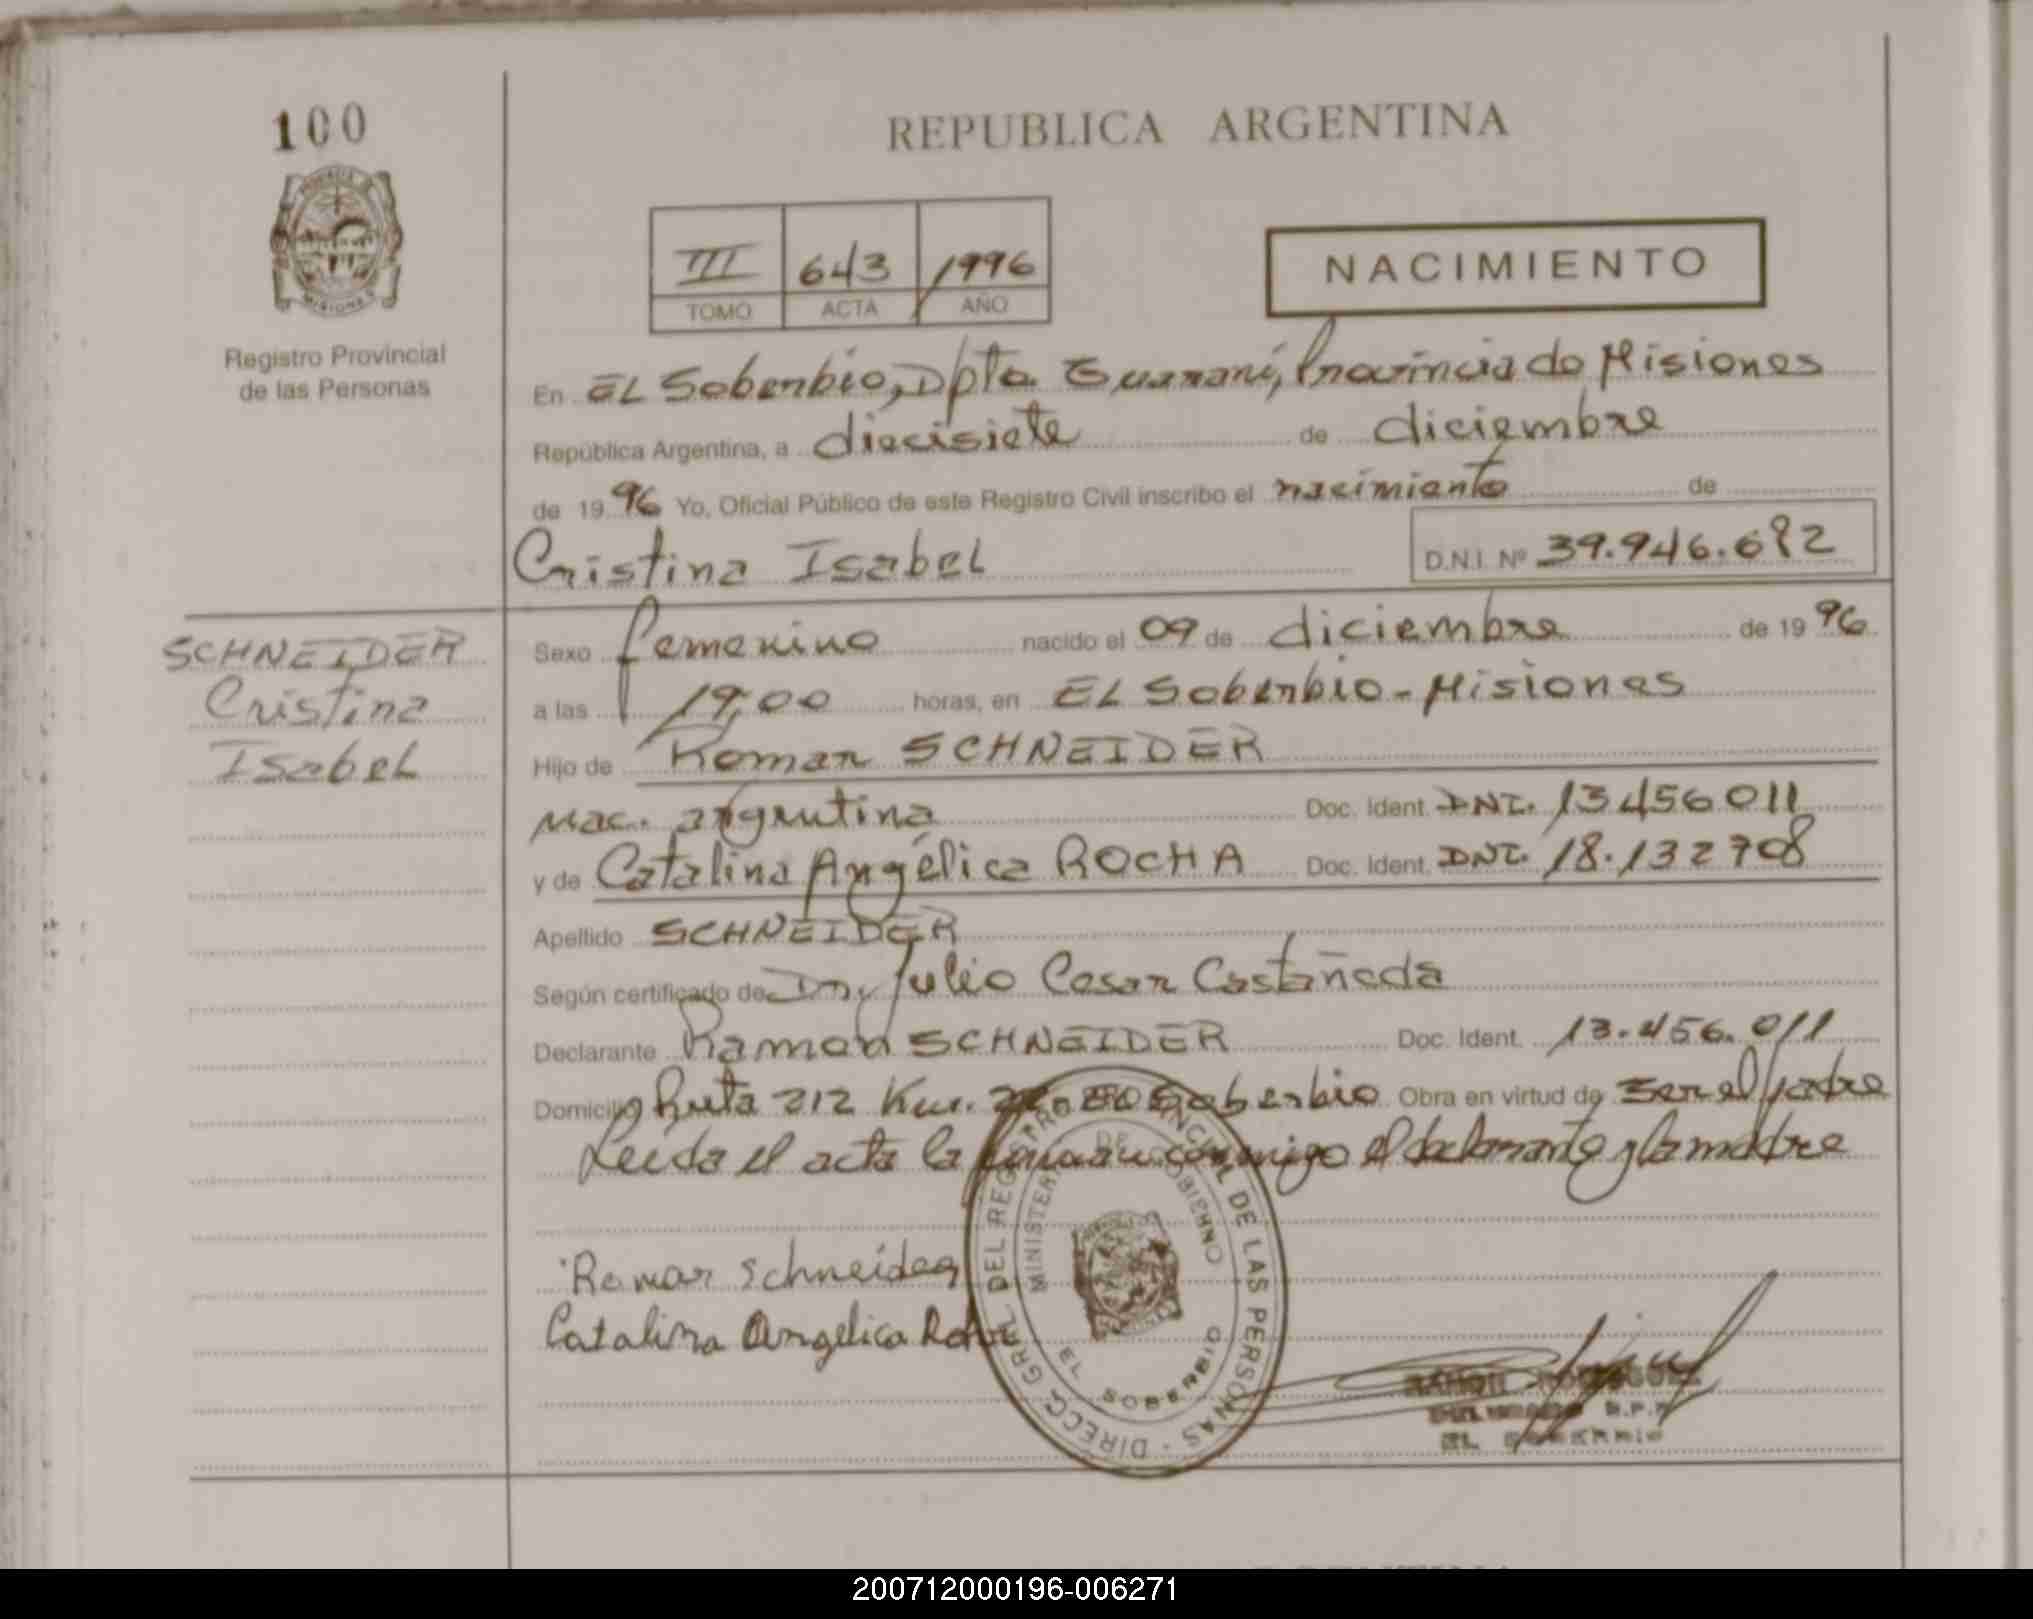 100
REPUBLICA ARGENTINA
PROVINCIA DE MISIONES
Registro Provincial
de las Personas
III 643 1996
TOMO ACTA AÑO
NACIMIENTO
En EL Soberbio, Dpto. Guaraní, Provincia de Misiones
República Argentina, a diecisiete de diciembre
de 19 96 Yo, Oficial Público de este Registro Civil inscribo el nacimiento de
Cristina Isabel D.N.I. Nº 39.946.692
SCHNEIDER
Cristina
Isabel
Sexo femenino nacido el 09 de diciembre de 19 96
a las 19,00 horas, en EL Soberbio - Misiones
Hijo de SCHNEIDER
nac. argentina Doc. Ident. DNI. 13456011
y de Catalina Angélica ROCHA Doc. Ident. DNI. 18.132708
Apellido SCHNEIDER
Según certificado de Dr. Julio Cesar Castañeda
Declarante SCHNEIDER Doc. Ident. 13.456.011
Domicilio Ruta 212 Km. Soberbio Obra en virtud de ser el padre
Leída el acta la firman conmigo el declarante y la madre
Schneider
Catalina Angelica
DIRECC. GRAL. DEL REGISTRO PROVINCIAL DE LAS PERSONAS
MINISTERIO DE GOBIERNO
EL SOBERBIO
R.P.P.
EL SOBERBIO
200712000196-006271